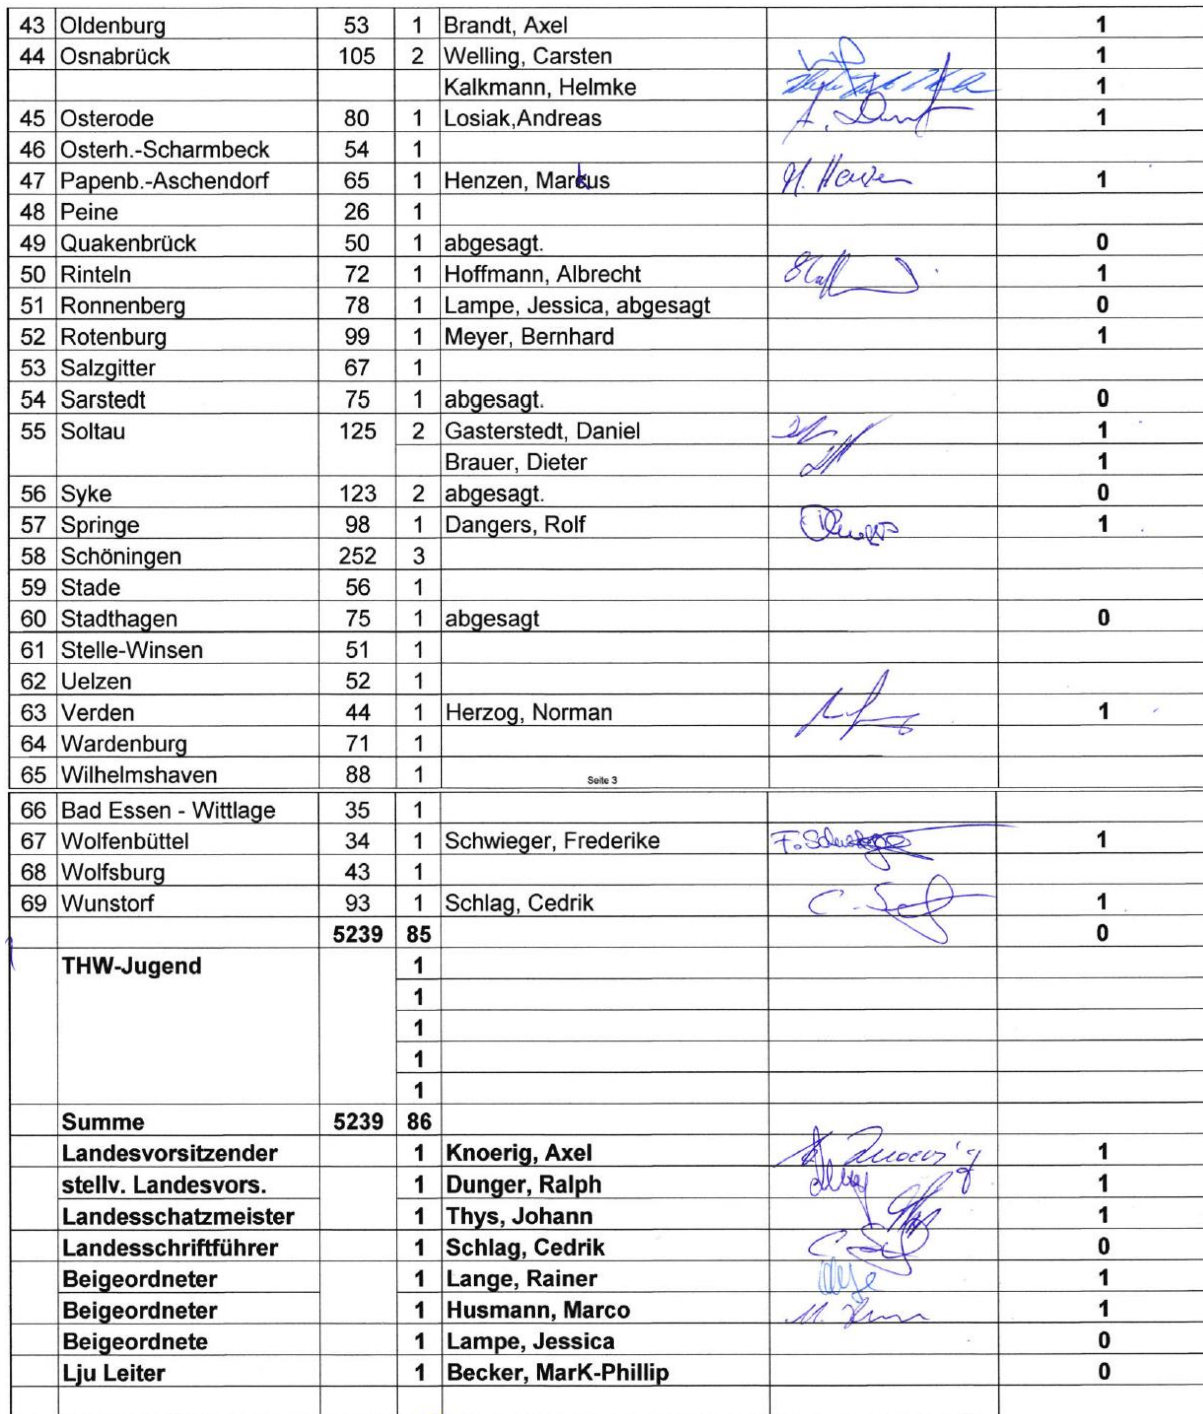 43 Oldenburg 53 1 Brandt, Axel 1
44 Osnabrück 105 2 Welling, Carsten 1
Kalkmann, Helmke 1
45 Osterode 80 1 Losiak,Andreas 1
46 Osterh.-Scharmbeck 54 1
47 Papenb.-Aschendorf 65 1 Henzen, Markus M. Henzen 1
48 Peine 26 1
49 Quakenbrück 50 1 abgesagt. 0
50 Rinteln 72 1 Hoffmann, Albrecht 1
51 Ronnenberg 78 1 Lampe, Jessica, abgesagt 0
52 Rotenburg 99 1 Meyer, Bernhard 1
53 Salzgitter 67 1
54 Sarstedt 75 1 abgesagt. 0
55 Soltau 125 2 Gasterstedt, Daniel 1
Brauer, Dieter 1
56 Syke 123 2 abgesagt. 0
57 Springe 98 1 Dangers, Rolf 1
58 Schöningen 252 3
59 Stade 56 1
60 Stadthagen 75 1 abgesagt 0
61 Stelle-Winsen 51 1
62 Uelzen 52 1
63 Verden 44 1 Herzog, Norman 1
64 Wardenburg 71 1
65 Wilhelmshaven 88 1 Seite 3
66 Bad Essen - Wittlage 35 1
67 Wolfenbüttel 34 1 Schwieger, Frederike 1
68 Wolfsburg 43 1
69 Wunstorf 93 1 Schlag, Cedrik 1
5239 85 0
THW-Jugend 1
1
1
1
1
Summe 5239 86
Landesvorsitzender 1 Knoerig, Axel 1
stellv. Landesvors. 1 Dunger, Ralph 1
Landesschatzmeister 1 Thys, Johann 1
Landesschriftführer 1 Schlag, Cedrik 0
Beigeordneter 1 Lange, Rainer 1
Beigeordneter 1 Husmann, Marco 1
Beigeordnete 1 Lampe, Jessica 0
Lju Leiter 1 Becker, MarK-Phillip 0